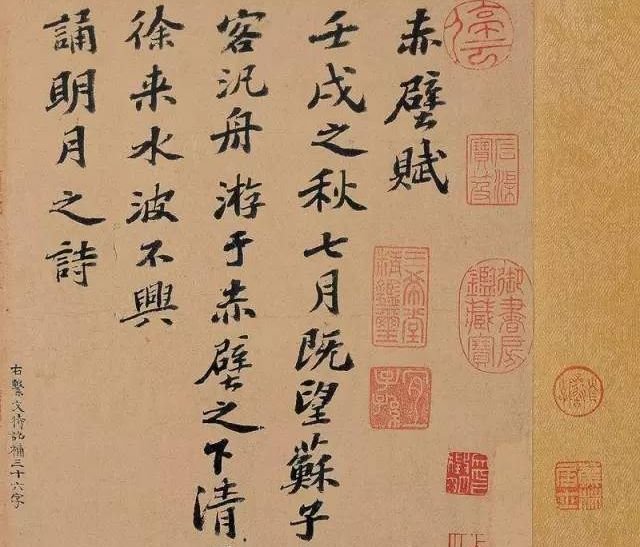 停雲
赤壁賦
御書房鑑藏寶
三希堂精鑑璽
宜子孫
壬戌之秋七月既望蘇子
客汎舟游于赤壁之下清
徐来水波不興
誦明月之詩
右繫文待詔補三十六字